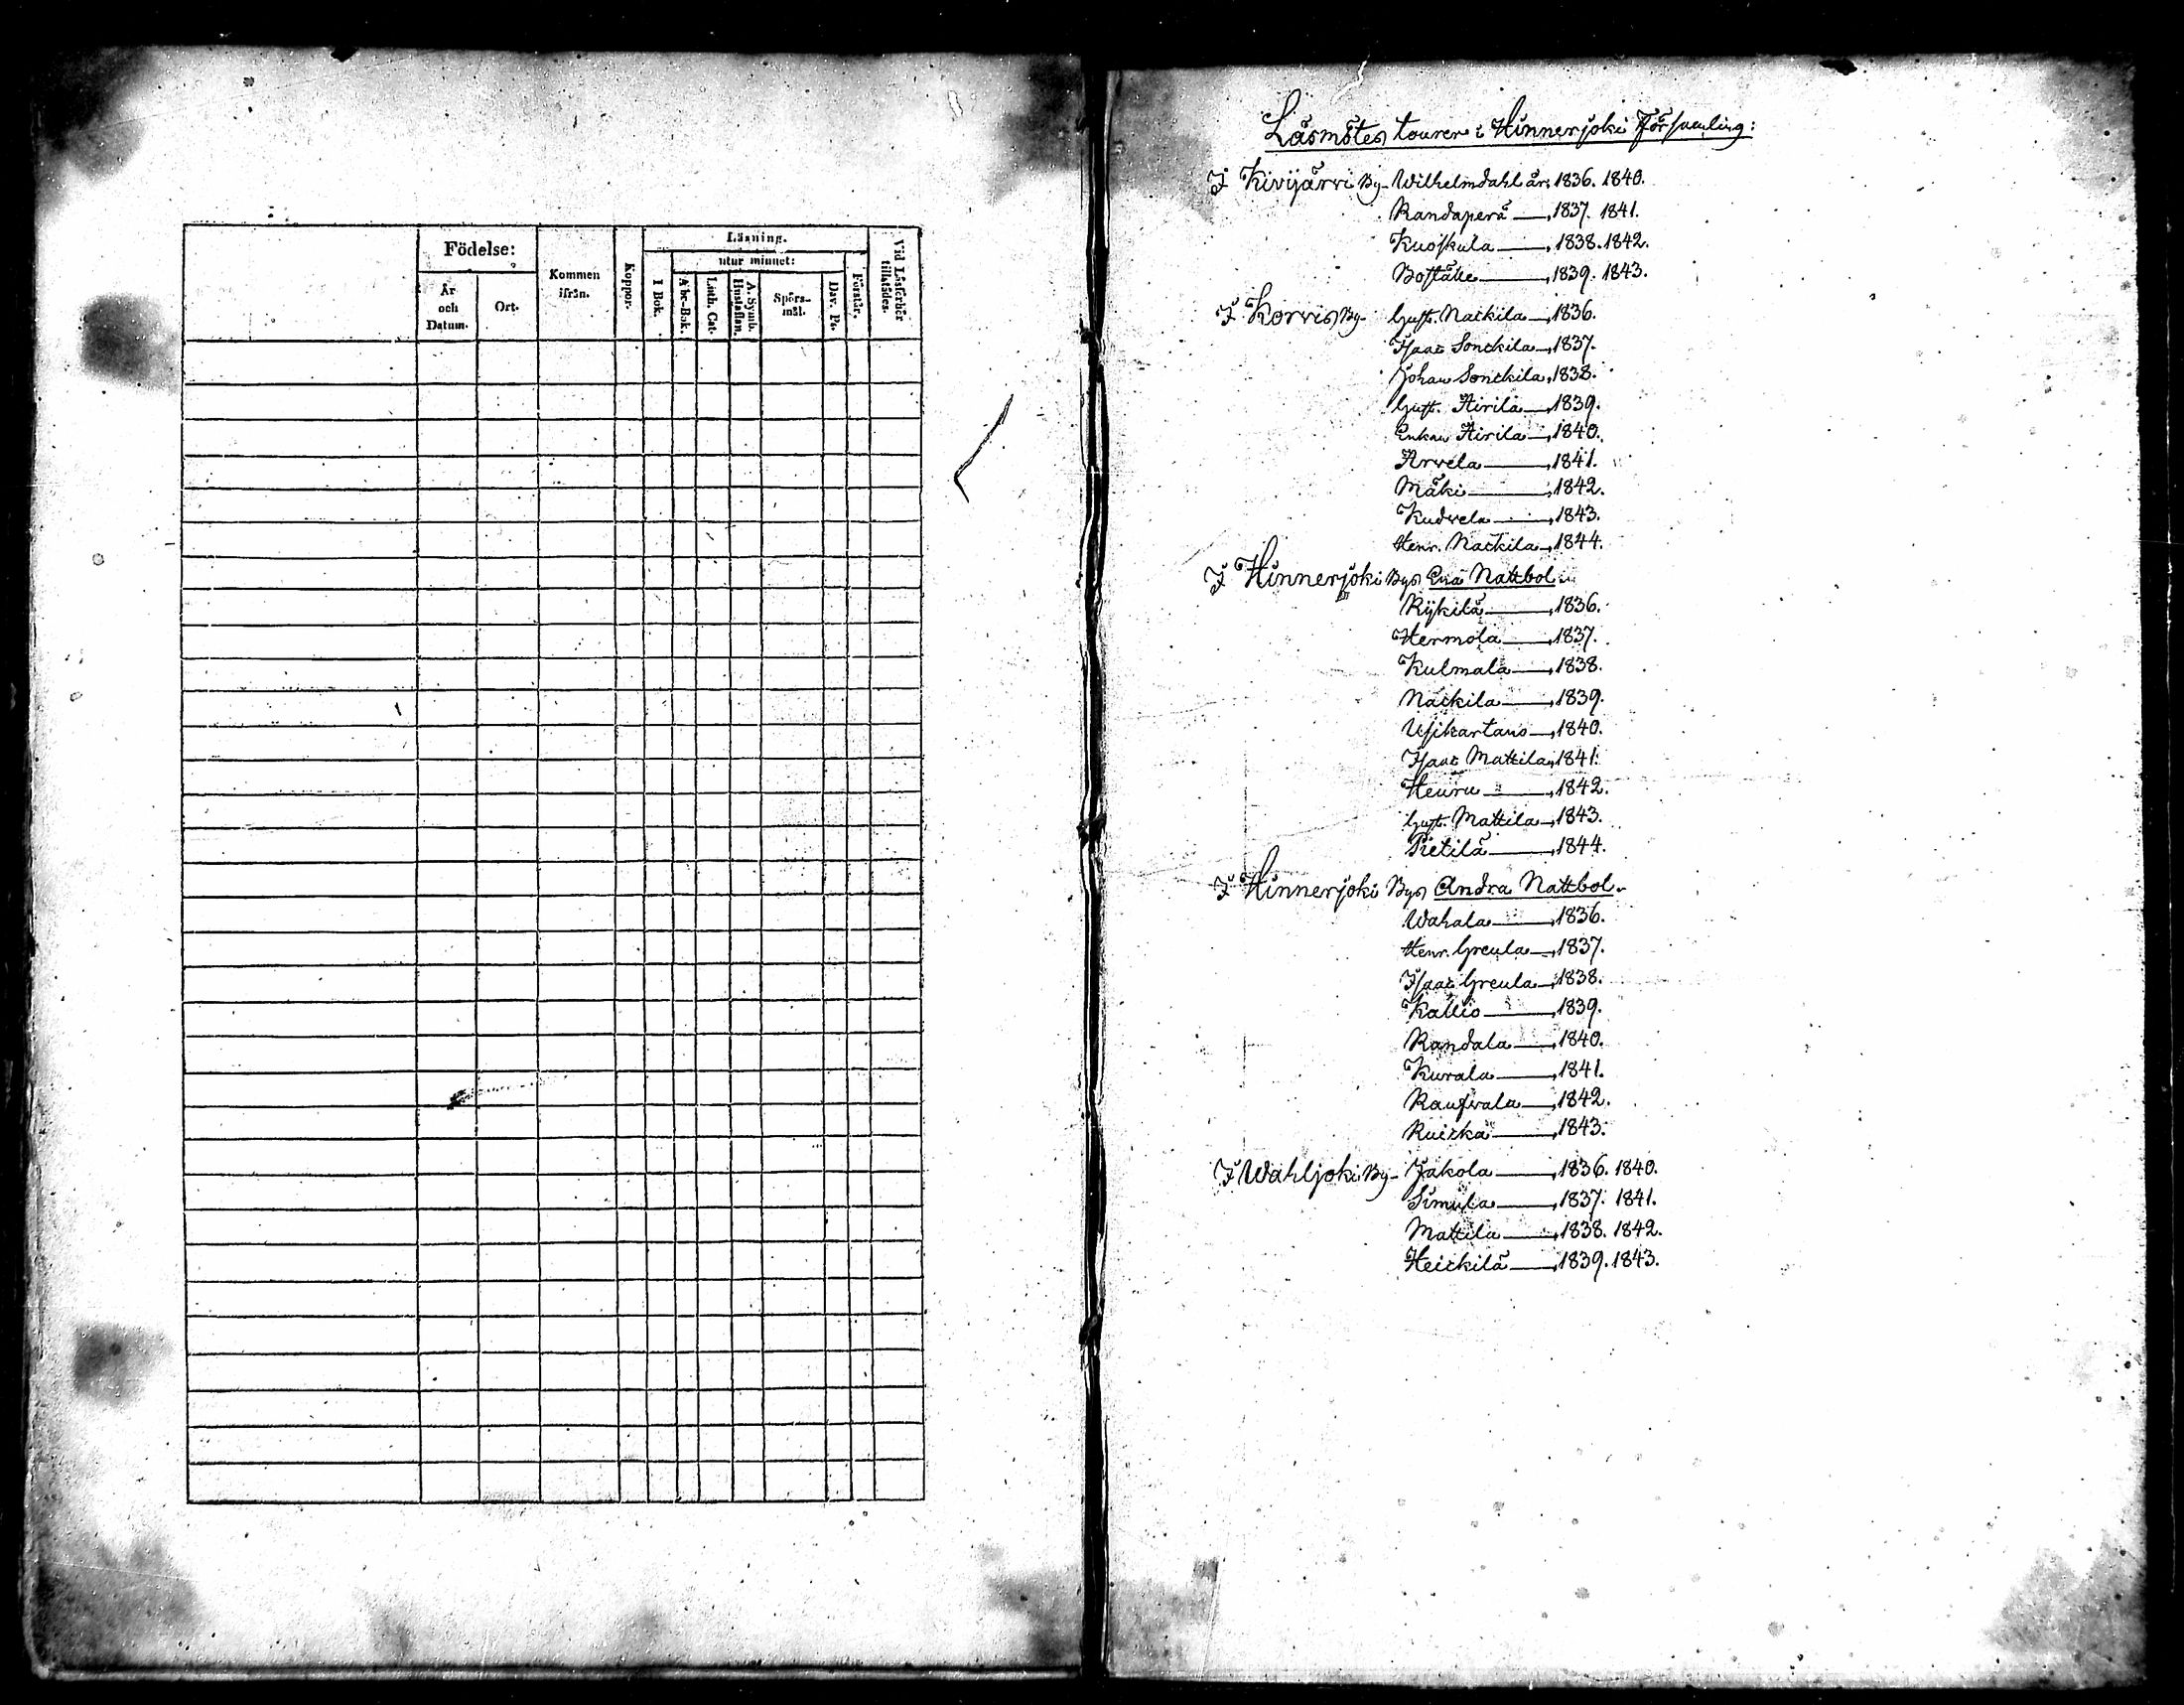 Födelse:
År och Datum.
Ort.
Kommen ifrån.
Koppor.
Läsning.
I Bok.
utur minnet:
Abc-Bok.
Luth. Cat.
A. Symb. Hustaflan.
Spörs-mål.
Dav. Ps.
Förstår.
Vid Läsförhör tillstädes.
Läsmötes tourer i Hinnerjoki Församling:
I Kivijärvi By- Wilhelmdahl år, 1836. 1840.
Randaperä —, 1837. 1841.
Kuoskula —, 1838. 1842.
Boställe —, 1839. 1843.
I Korvis By- Gust. Nackila —, 1836.
Isaac Sonckila —, 1837.
Johan Sonckila, 1838.
Gust. Airila —, 1839.
Enkan Airila —, 1840.
Arvela —, 1841.
Mäki —, 1842.
Kudvela —, 1843.
Henr. Nackila —, 1844.
I Hinnerjoki Bys Ena Nattbol.
Rykilä —, 1836.
Hermola —, 1837.
Kulmala —, 1838.
Nackila —, 1839.
Usikartano —, 1840.
Isaac Mattila, 1841.
Heuru —, 1842.
Gust. Mattila —, 1843.
Pietilä —, 1844.
I Hinnerjoki Bys Andra Nattbol.
Wahala —, 1836.
Henr. Greula —, 1837.
Isaac Greula —, 1838.
Kallio —, 1839.
Randala —, 1840.
Kurala —, 1841.
Raukvala —, 1842.
Ruicka —, 1843.
I Wahljoki By- Jakola —, 1836. 1840.
Simula —, 1837. 1841.
Mattila —, 1838. 1842.
Heickilä —, 1839. 1843.